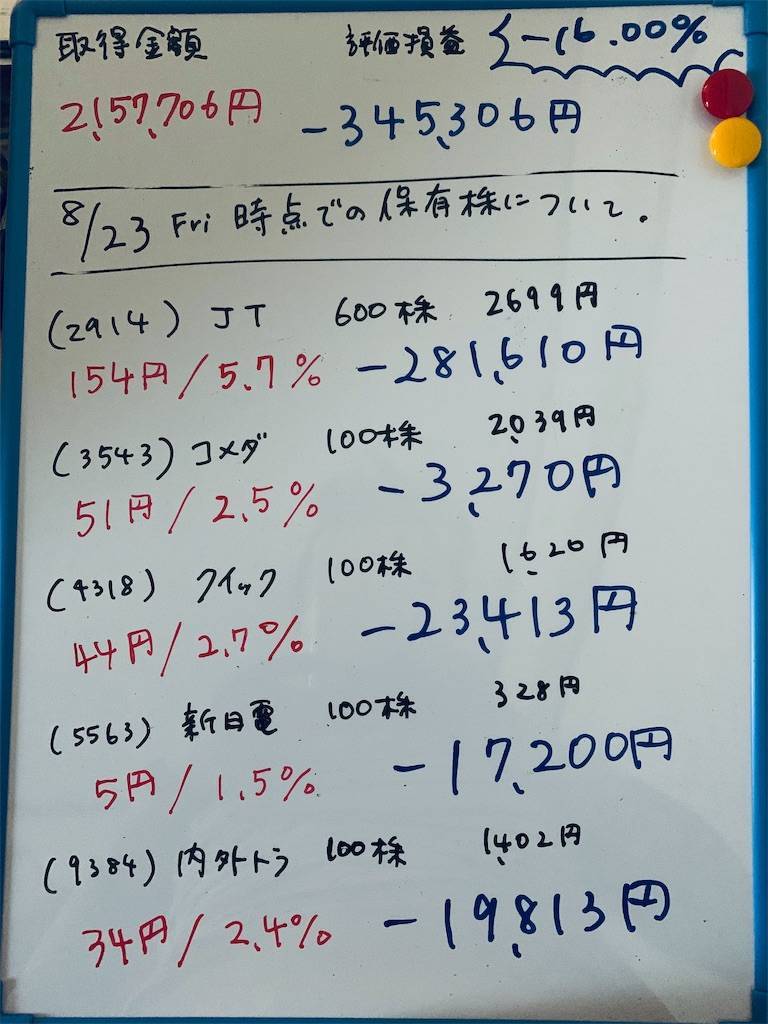 取得金額 評価損益 -16.00%
2,157,706円 -345,306円
8/23 Fri 時点での保有株について.
(2914) JT 600株 2699円
154円/5.7% -281,610円
(3543) コメダ 100株 2,039円
51円/2.5% -3,270円
(4318) クイック 100株 1,620円
44円/2.7% -23,413円
(5563) 新日電 100株 328円
5円/1.5% -17,200円
(9384) 内外トラ 100株 1,402円
34円/2.4% -19,813円